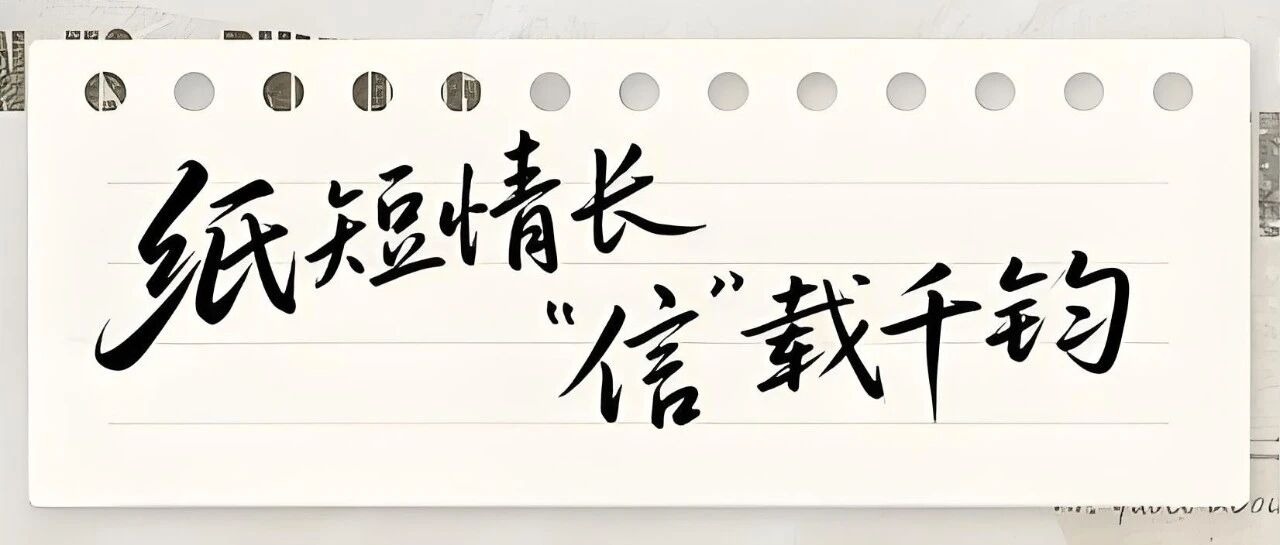 纸短情长
“信”载千钧